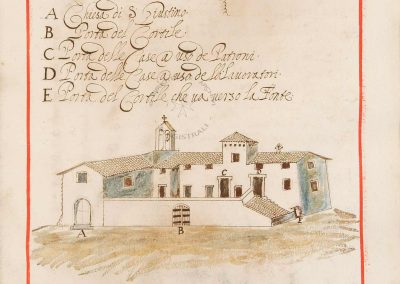 A Chiesa di S Giustino
B Porta del Cortile
C Porta delle Case a uso de Patroni
D Porta delle Case a uso de lavoratori
E Porta del Cortile che va verso la Fonte
C
A
B